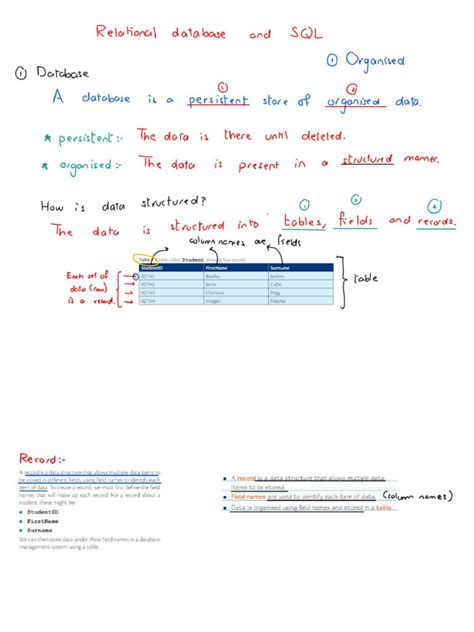 Relational database and SQL
① Organised
① Database
① ②
A database is a persistent store of organised data.
* persistent:- The data is there until deleted.
* organised:- The data is present in a structured manner.
How is data structured?
① ② ③
The data is structured into tables, fields and records.
column names are fields
Table called Student showing four records
StudentID FirstName Surname
Bradley Jenkins
Jamie Cable
Charlotte Pegg
Imogen Fletcher
Each set of
data (row)
is a record.
table
Record:-
A record is a data structure that allows multiple data items to
be stored in different fields, using field names to identify each
item of data. To create a record, we must first define the field
names that will make up each record. For a record about a
student, these might be:
• StudentID
• FirstName
• Surname
We can then store data under these field names in a database
management system using a table.
• A record is a data structure that allows multiple data
items to be stored.
• Field names are used to identify each item of data. (column names)
• Data is organised using field names and stored in a table.